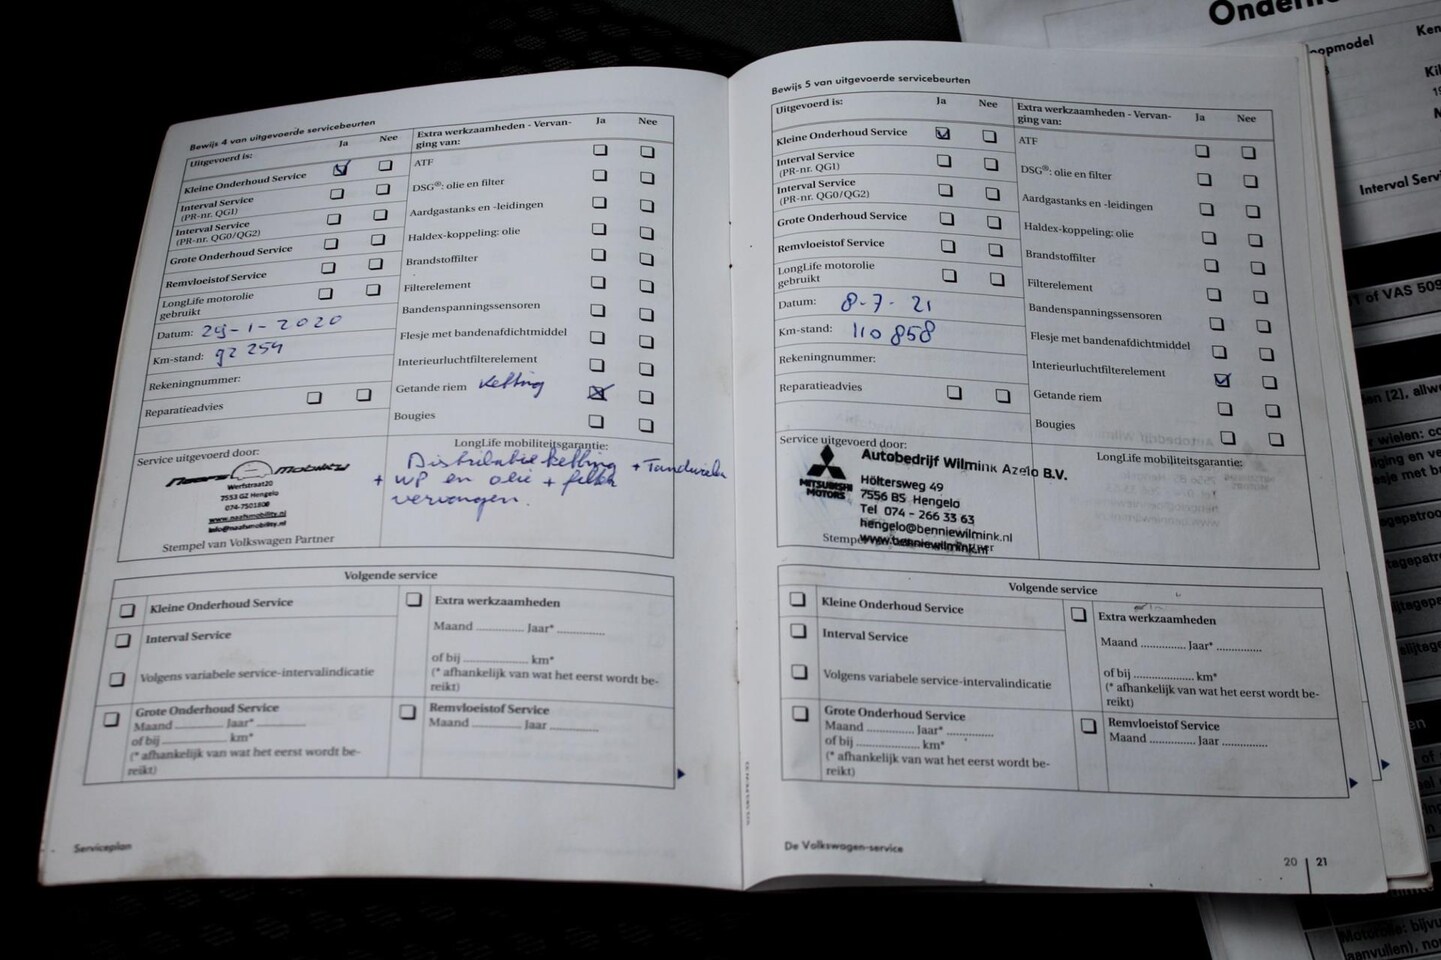 Bewijs 4 van uitgevoerde servicebeurten
Uitgevoerd is:
Ja
Nee
Kleine Onderhoud Service
Interval Service
(PR-nr. QG1)
Interval Service
(PR-nr. QG0/QG2)
Grote Onderhoud Service
Remvloeistof Service
LongLife motorolie
gebruikt
Datum: 29-1-2020
Km-stand: 92 254
Rekeningnummer:
Reparatieadvies
Extra werkzaamheden - Vervan-
ging van:
Ja
Nee
ATF
DSG®: olie en filter
Aardgastanks en -leidingen
Haldex-koppeling: olie
Brandstoffilter
Filterelement
Bandenspanningssensoren
Flesje met bandenafdichtmiddel
Interieurluchtfilterelement
Getande riem Ketting
Bougies
Service uitgevoerd door:
Mobility
Werfstraat20
7553 GZ Hengelo
Stempel van Volkswagen Partner
LongLife mobiliteitsgarantie:
Distributieketting + Tandwielen
+ WP en olie + filter
vervangen.
Volgende service
Kleine Onderhoud Service
Interval Service
Volgens variabele service-intervalindicatie
Grote Onderhoud Service
Maand ............ Jaar* ............
of bij ............... km*
(* afhankelijk van wat het eerst wordt be-
reikt)
Extra werkzaamheden
Maand ............ Jaar* ............
of bij ................ km*
(* afhankelijk van wat het eerst wordt be-
reikt)
Remvloeistof Service
Maand ............ Jaar ............
Serviceplan
Bewijs 5 van uitgevoerde servicebeurten
Uitgevoerd is:
Ja
Nee
Kleine Onderhoud Service
Interval Service
(PR-nr. QG1)
Interval Service
(PR-nr. QG0/QG2)
Grote Onderhoud Service
Remvloeistof Service
LongLife motorolie
gebruikt
Datum: 8-7-21
Km-stand: 110 858
Rekeningnummer:
Reparatieadvies
Extra werkzaamheden - Vervan-
ging van:
Ja
Nee
ATF
DSG®: olie en filter
Aardgastanks en -leidingen
Haldex-koppeling: olie
Brandstoffilter
Filterelement
Bandenspanningssensoren
Flesje met bandenafdichtmiddel
Interieurluchtfilterelement
Getande riem
Bougies
Service uitgevoerd door:
MITSUBISHI
MOTORS
Autobedrijf Wilmink Azelo B.V.
Höltersweg 49
7556 BS Hengelo
Tel 074 - 266 33 63
hengelo@benniewilmink.nl
www.benniewilmink.nl
LongLife mobiliteitsgarantie:
Volgende service
Kleine Onderhoud Service
Interval Service
Volgens variabele service-intervalindicatie
Grote Onderhoud Service
Maand ............ Jaar* ............
of bij ................ km*
(* afhankelijk van wat het eerst wordt be-
reikt)
Extra werkzaamheden
Maand ............ Jaar* ............
of bij ................ km*
(* afhankelijk van wat het eerst wordt be-
reikt)
Remvloeistof Service
Maand ............ Jaar ............
De Volkswagen-service
20 | 21
Interval Servi
of VAS 509